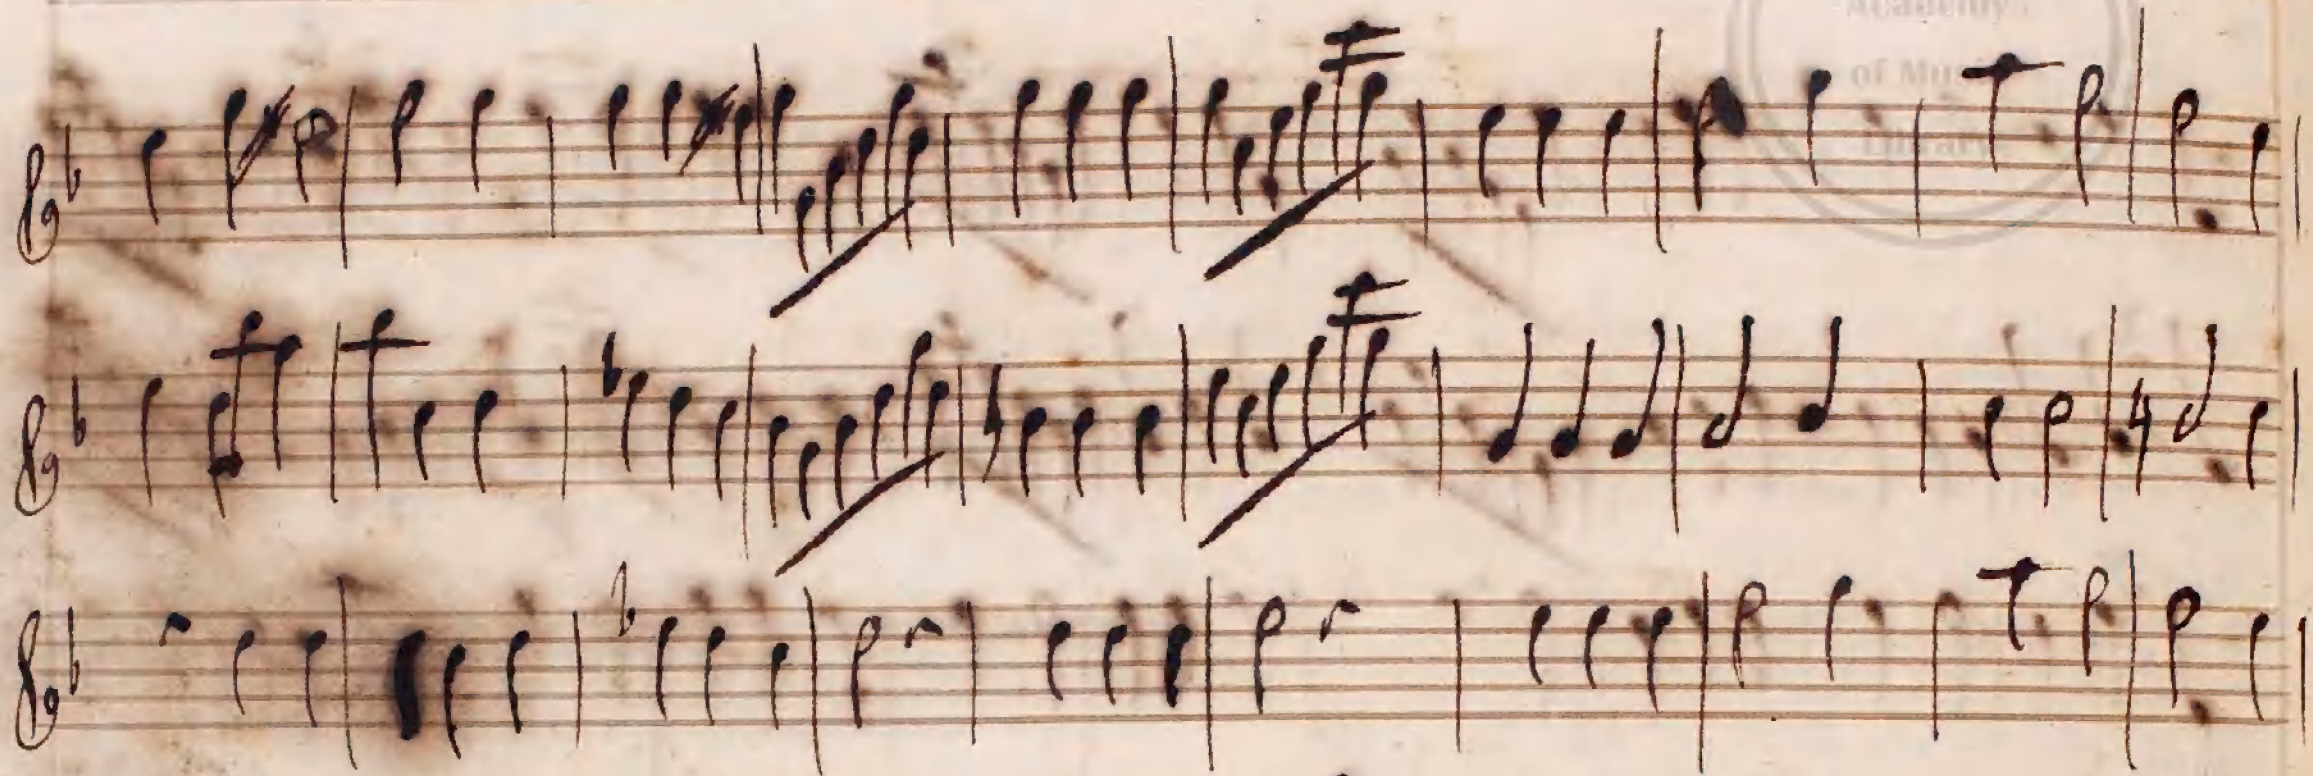 Academy
of Music
Library